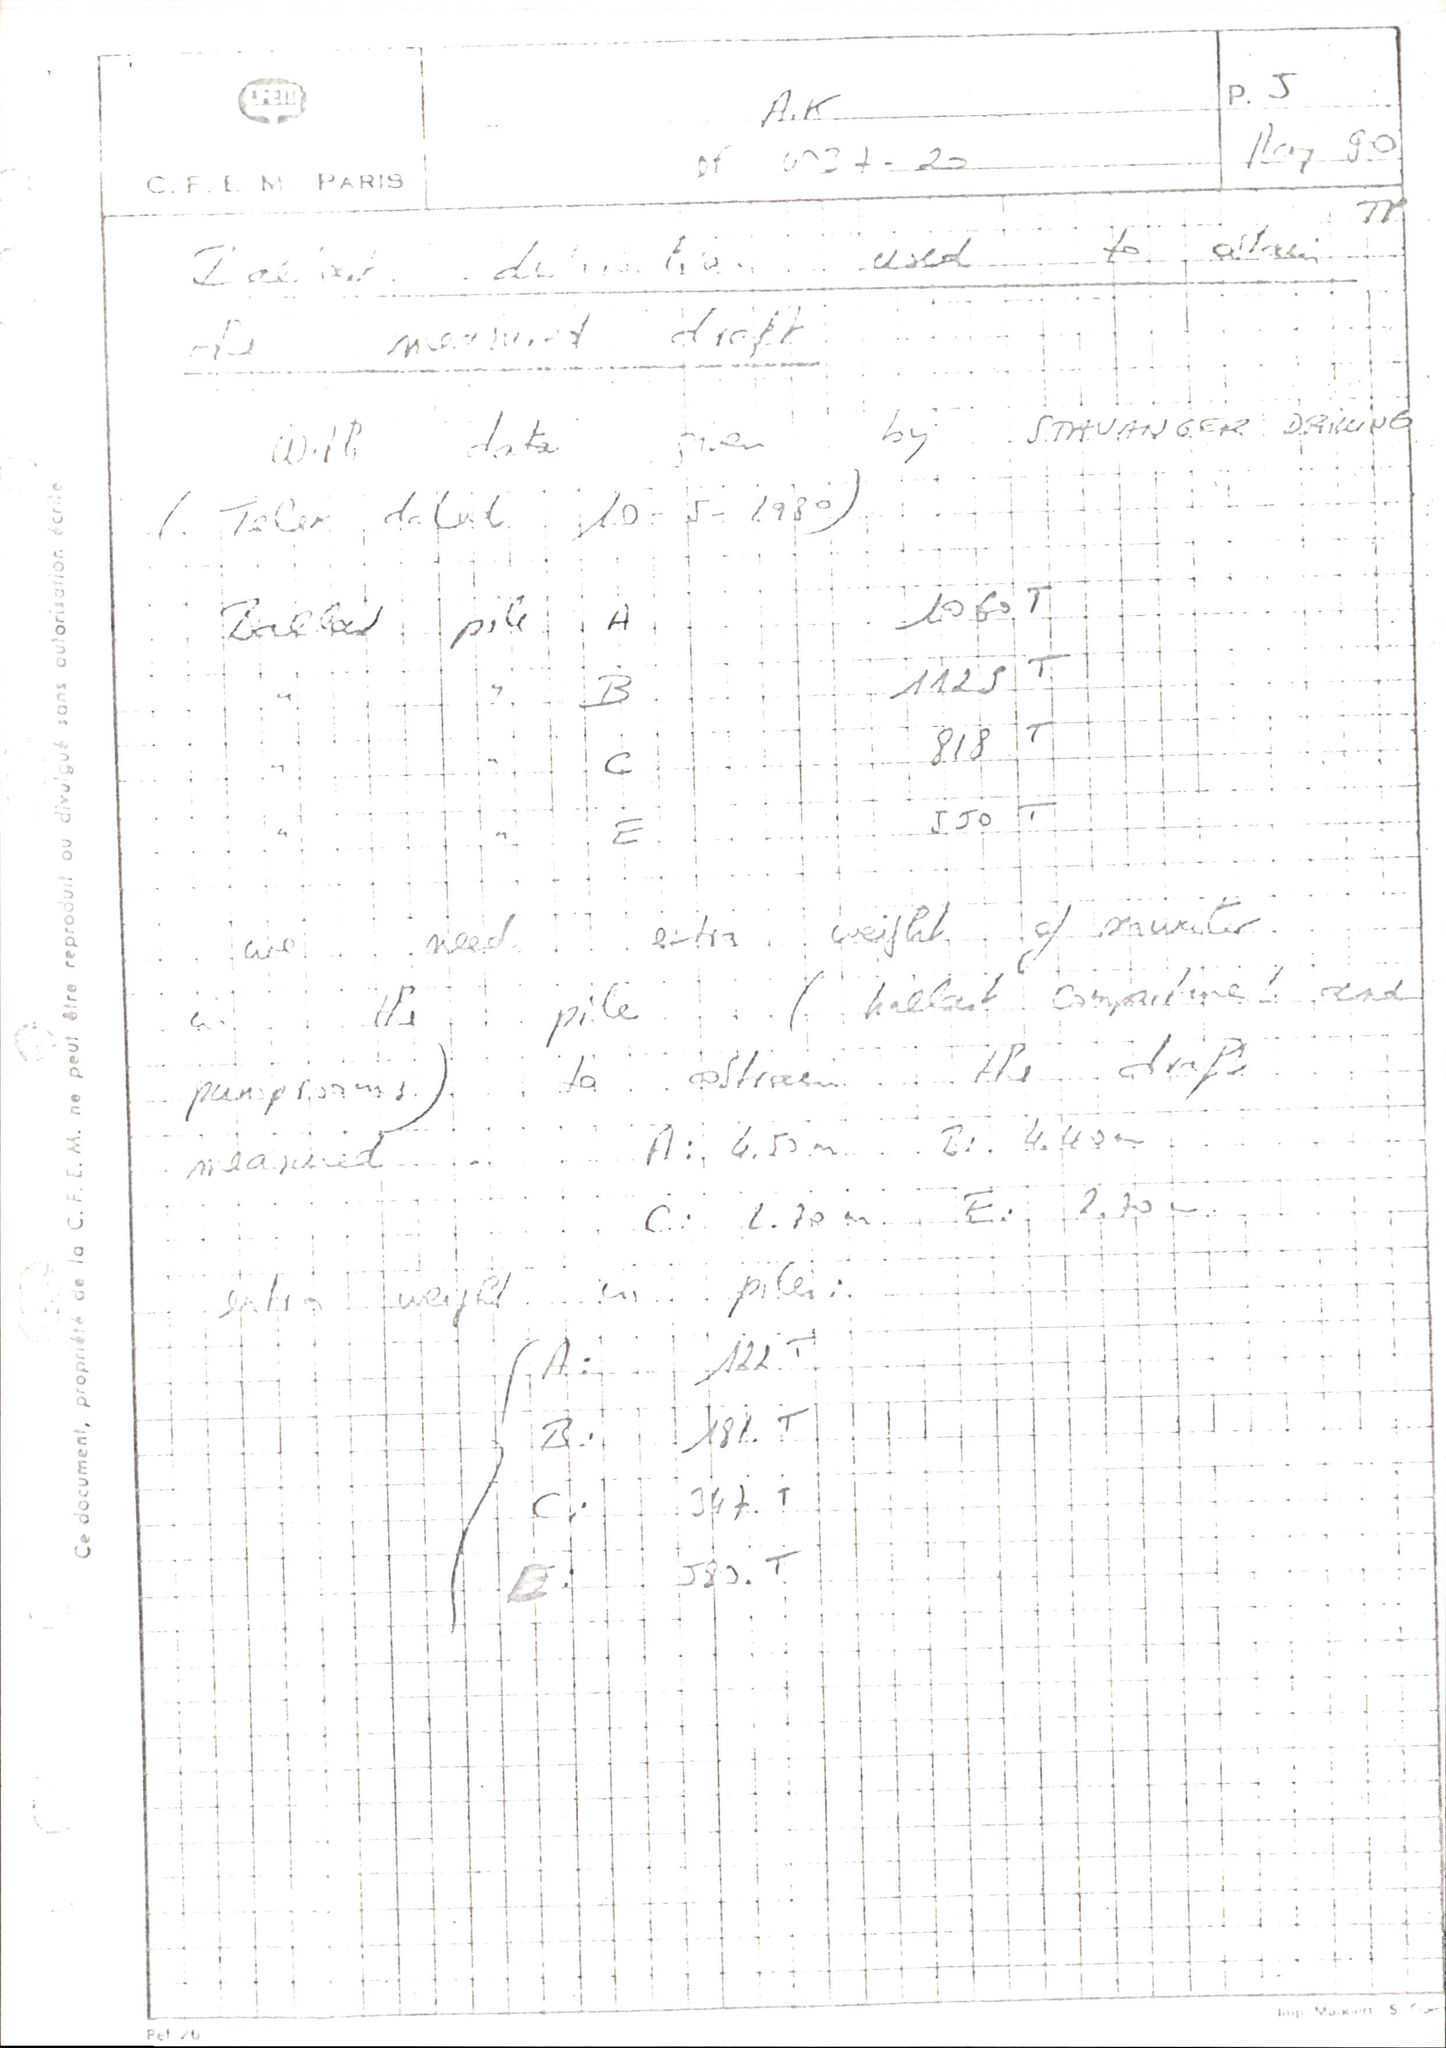 C.F.E.M. PARIS
A.K
p. 5
of 20
May 80
TP
Ballast distribution used to attain
the measured draft
With data given by STAVANGER DRILLING
(Telex dated 10-5-1980)
Ballast pile A 1060 T
" " B 1125 T
" " C 818 T
" " E 550 T
we need extra weight of seawater
in the pile (ballast compartment and
pumprooms) to obtain the draft
measured A: 4.50 m B: 4.40 m
C: 2.70 m E: 2.70 m
extra weight in piles:
A: 122 T
B: 181 T
C: 347 T
E: T
Ce document, propriété de la C.F.E.M. ne peut être reproduit ou divulgué sans autorisation écrite
Ref 26
Imp.